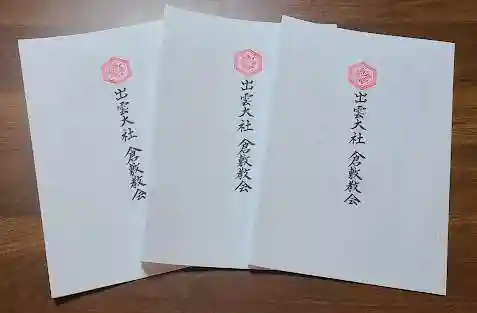 出雲大社 倉敷教会
出雲大社 倉敷教会
出雲大社 倉敷教会